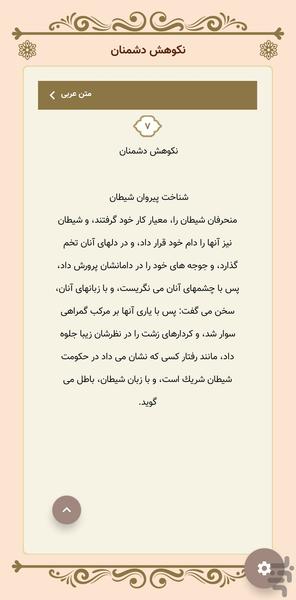 نکوهش دشمنان
متن عربی
۷
نکوهش دشمنان
شناخت پیروان شیطان
منحرفان شیطان را، معیار کار خود گرفتند، و شیطان
نیز آنها را دام خود قرار داد، و در دلهای آنان تخم
گذارد، و جوجه های خود را در دامانشان پرورش داد،
پس با چشمهای آنان می نگریست، و با زبانهای آنان،
سخن می گفت: پس با یاری آنها بر مرکب گمراهی
سوار شد، و کردارهای زشت را در نظرشان زیبا جلوه
داد، مانند رفتار کسی که نشان می داد در حکومت
شیطان شریك است، و با زبان شیطان، باطل می
گوید.